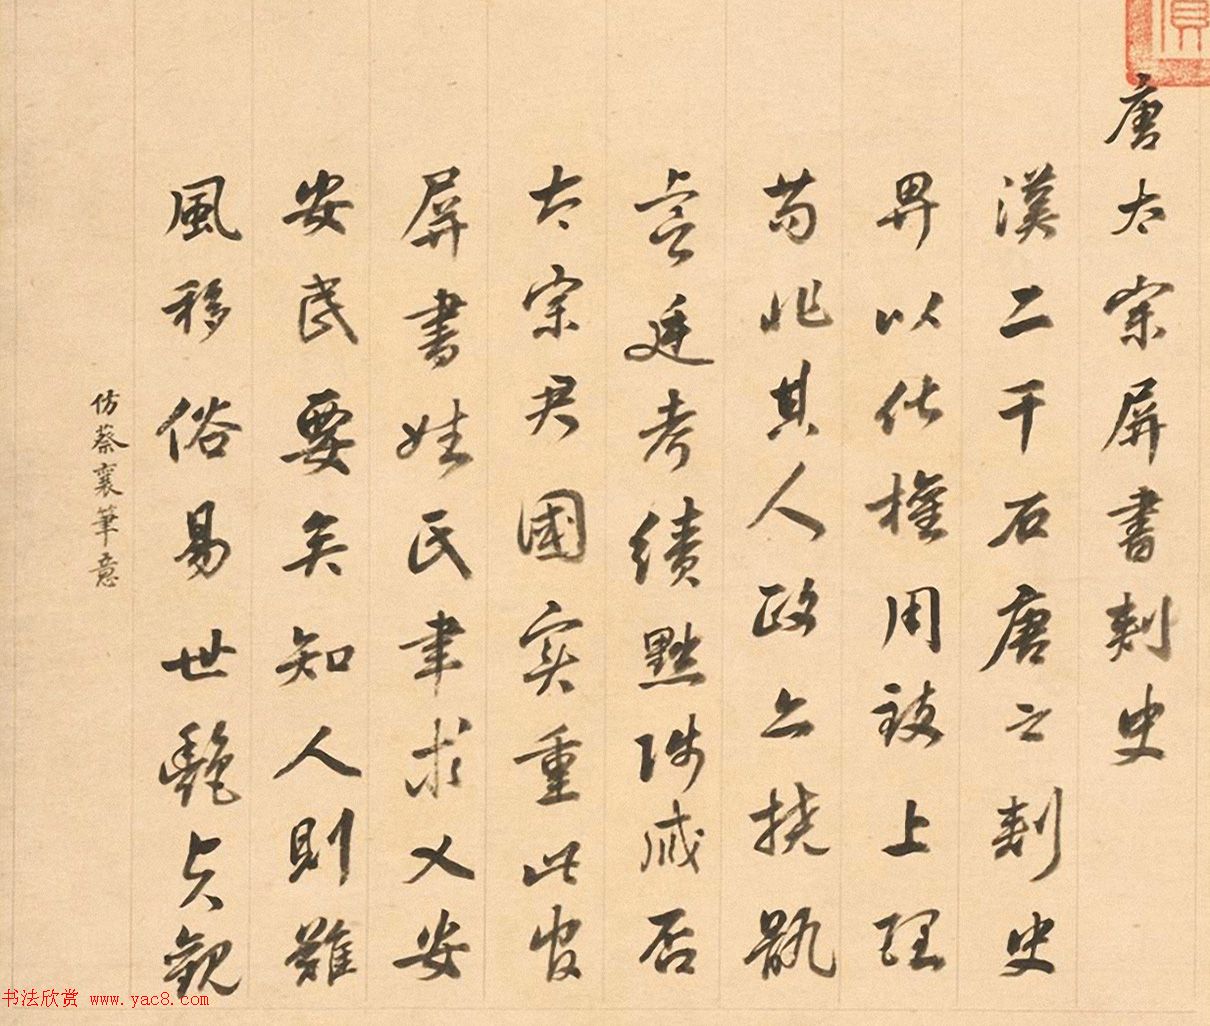 唐太宗屏書刺史
漢二千石唐之刺史
畀以化權用致上理
苟非其人政亦撓骫
虞廷考績黜陟臧否
太宗君國實重此官
屏書姓氏聿求乂安
安民要矣知人則難
風移俗易世艷貞觀
仿蔡襄筆意
书法欣赏 www.yac8.com